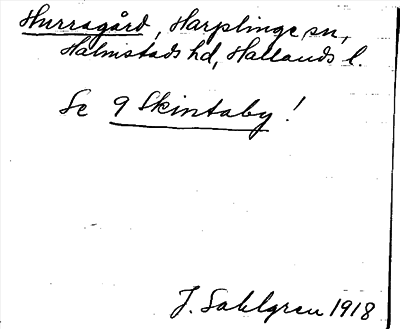 Hurragård, Harplinge sn,
Halmstads hd, Hallands l.
Se 9 Skintaby!
J. Sahlgren 1918